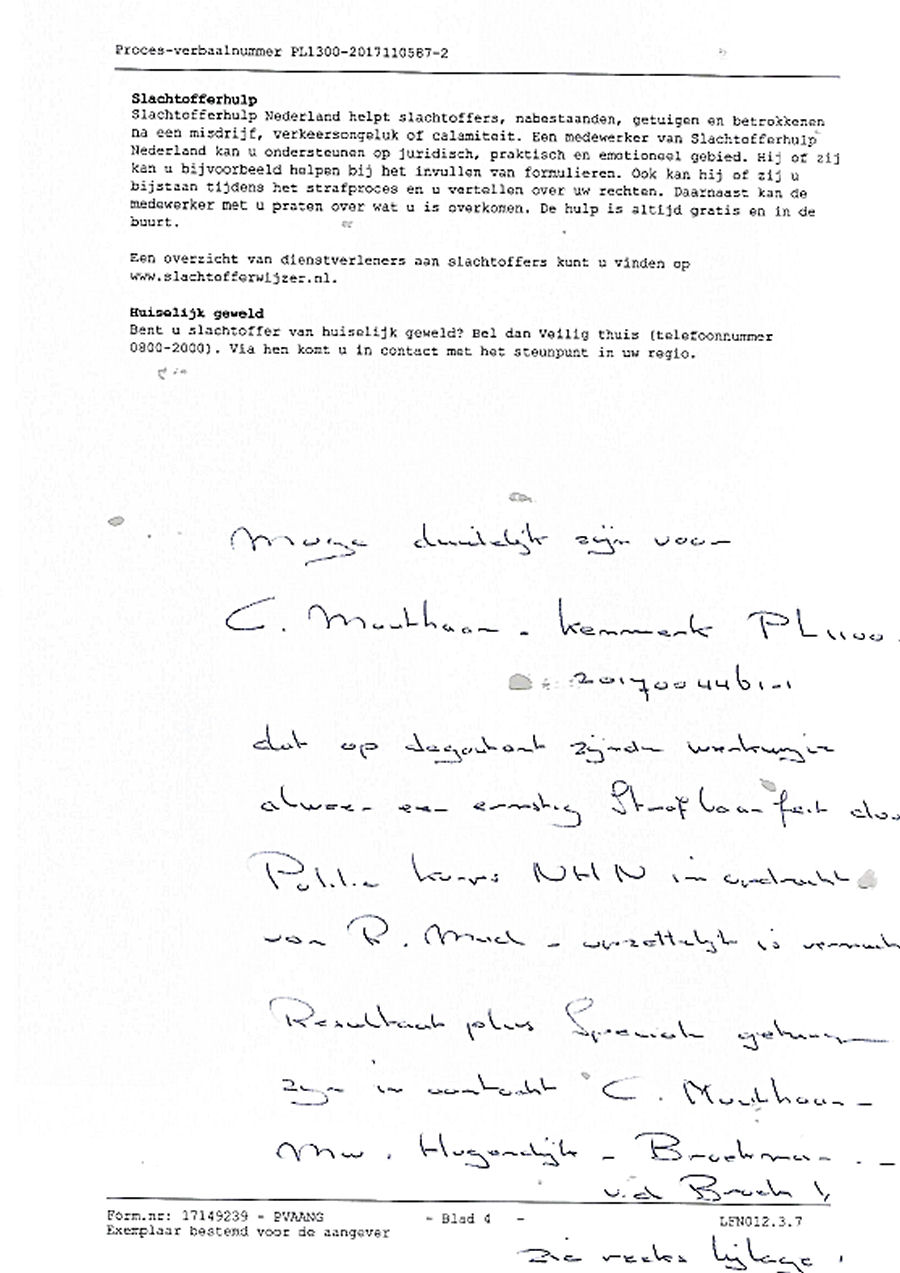 Proces-verbaalnummer PL1300-2017110587-2
Slachtofferhulp
Slachtofferhulp Nederland helpt slachtoffers, nabestaanden, getuigen en betrokkenen
na een misdrijf, verkeersongeluk of calamiteit. Een medewerker van Slachtofferhulp
Nederland kan u ondersteunen op juridisch, praktisch en emotioneel gebied. Hij of zij
kan u bijvoorbeeld helpen bij het invullen van formulieren. Ook kan hij of zij u
bijstaan tijdens het strafproces en u vertellen over uw rechten. Daarnaast kan de
medewerker met u praten over wat u is overkomen. De hulp is altijd gratis en in de
buurt.
Een overzicht van dienstverleners aan slachtoffers kunt u vinden op
www.slachtofferwijzer.nl.
Huiselijk geweld
Bent u slachtoffer van huiselijk geweld? Bel dan Veilig thuis (telefoonnummer
0800-2000). Via hen komt u in contact met het steunpunt in uw regio.
duidelijk zijn voor
C. - kenmerk PL1100.
2017004461-1
dat op
alweer een ernstig Strafbaar feit
Politie korps NHN in opdracht
van P. - opzettelijk is
Resultaat plus
zijn in C.
Mw.
v.d Broek !,
Form.nr: 17149239 - PVAANG - Blad 4 - LFN012.3.7
Exemplaar bestemd voor de aangever
Zie reeks bijlage !